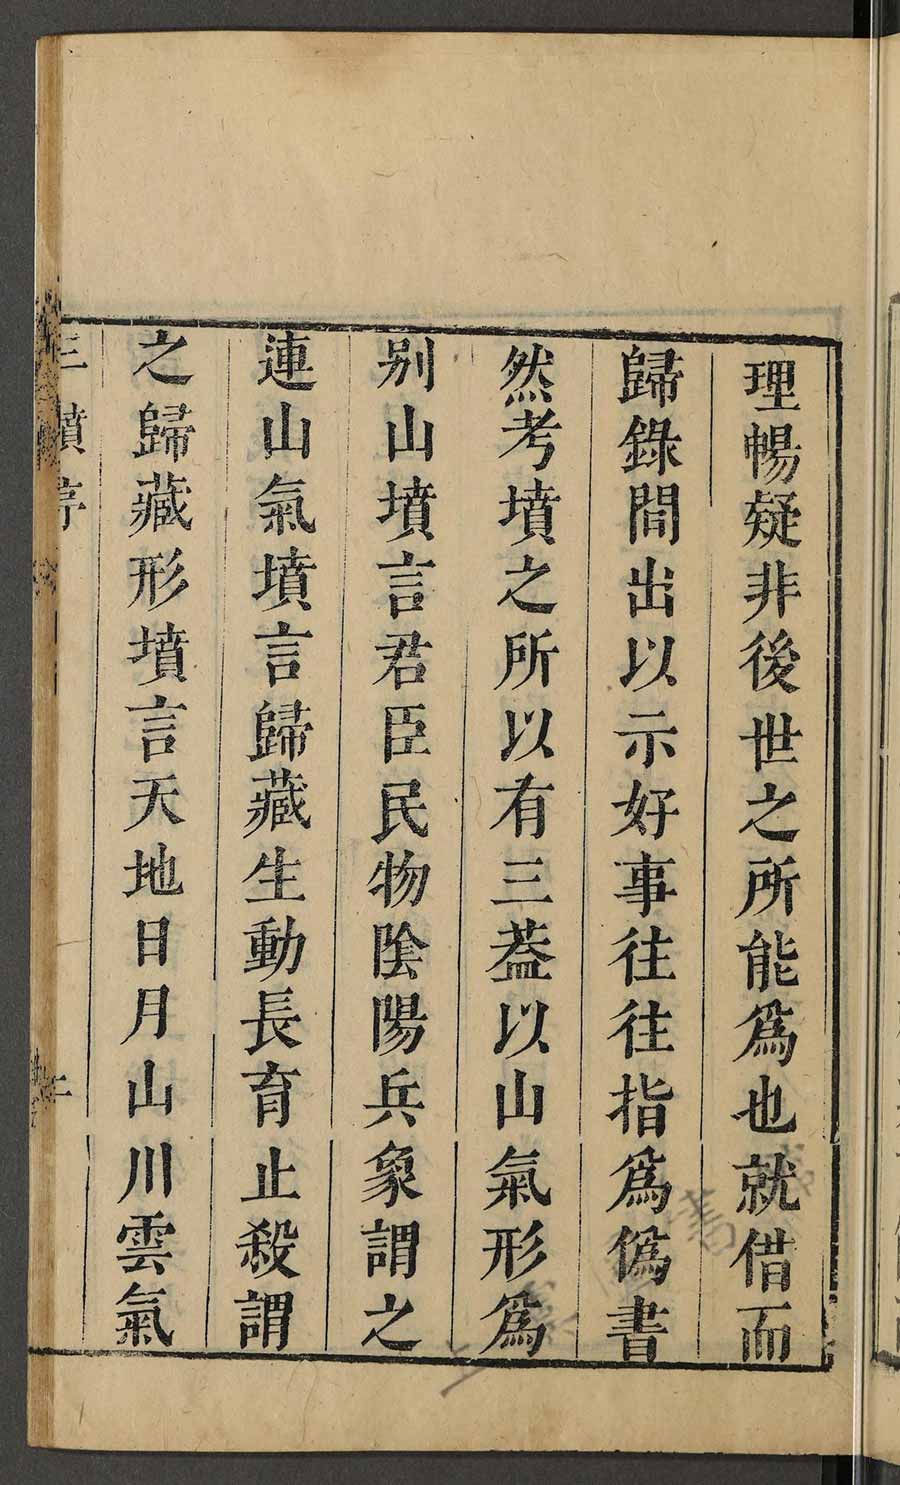 理暢疑非後世之所能爲也就借而
歸錄間出以示好事往往指爲僞書
然考墳之所以有三葢以山氣形爲
别山墳言君臣民物陰陽兵象謂之
連山氣墳言歸藏生動長育止殺謂
之歸藏形墳言天地日月山川雲氣
三墳序
二